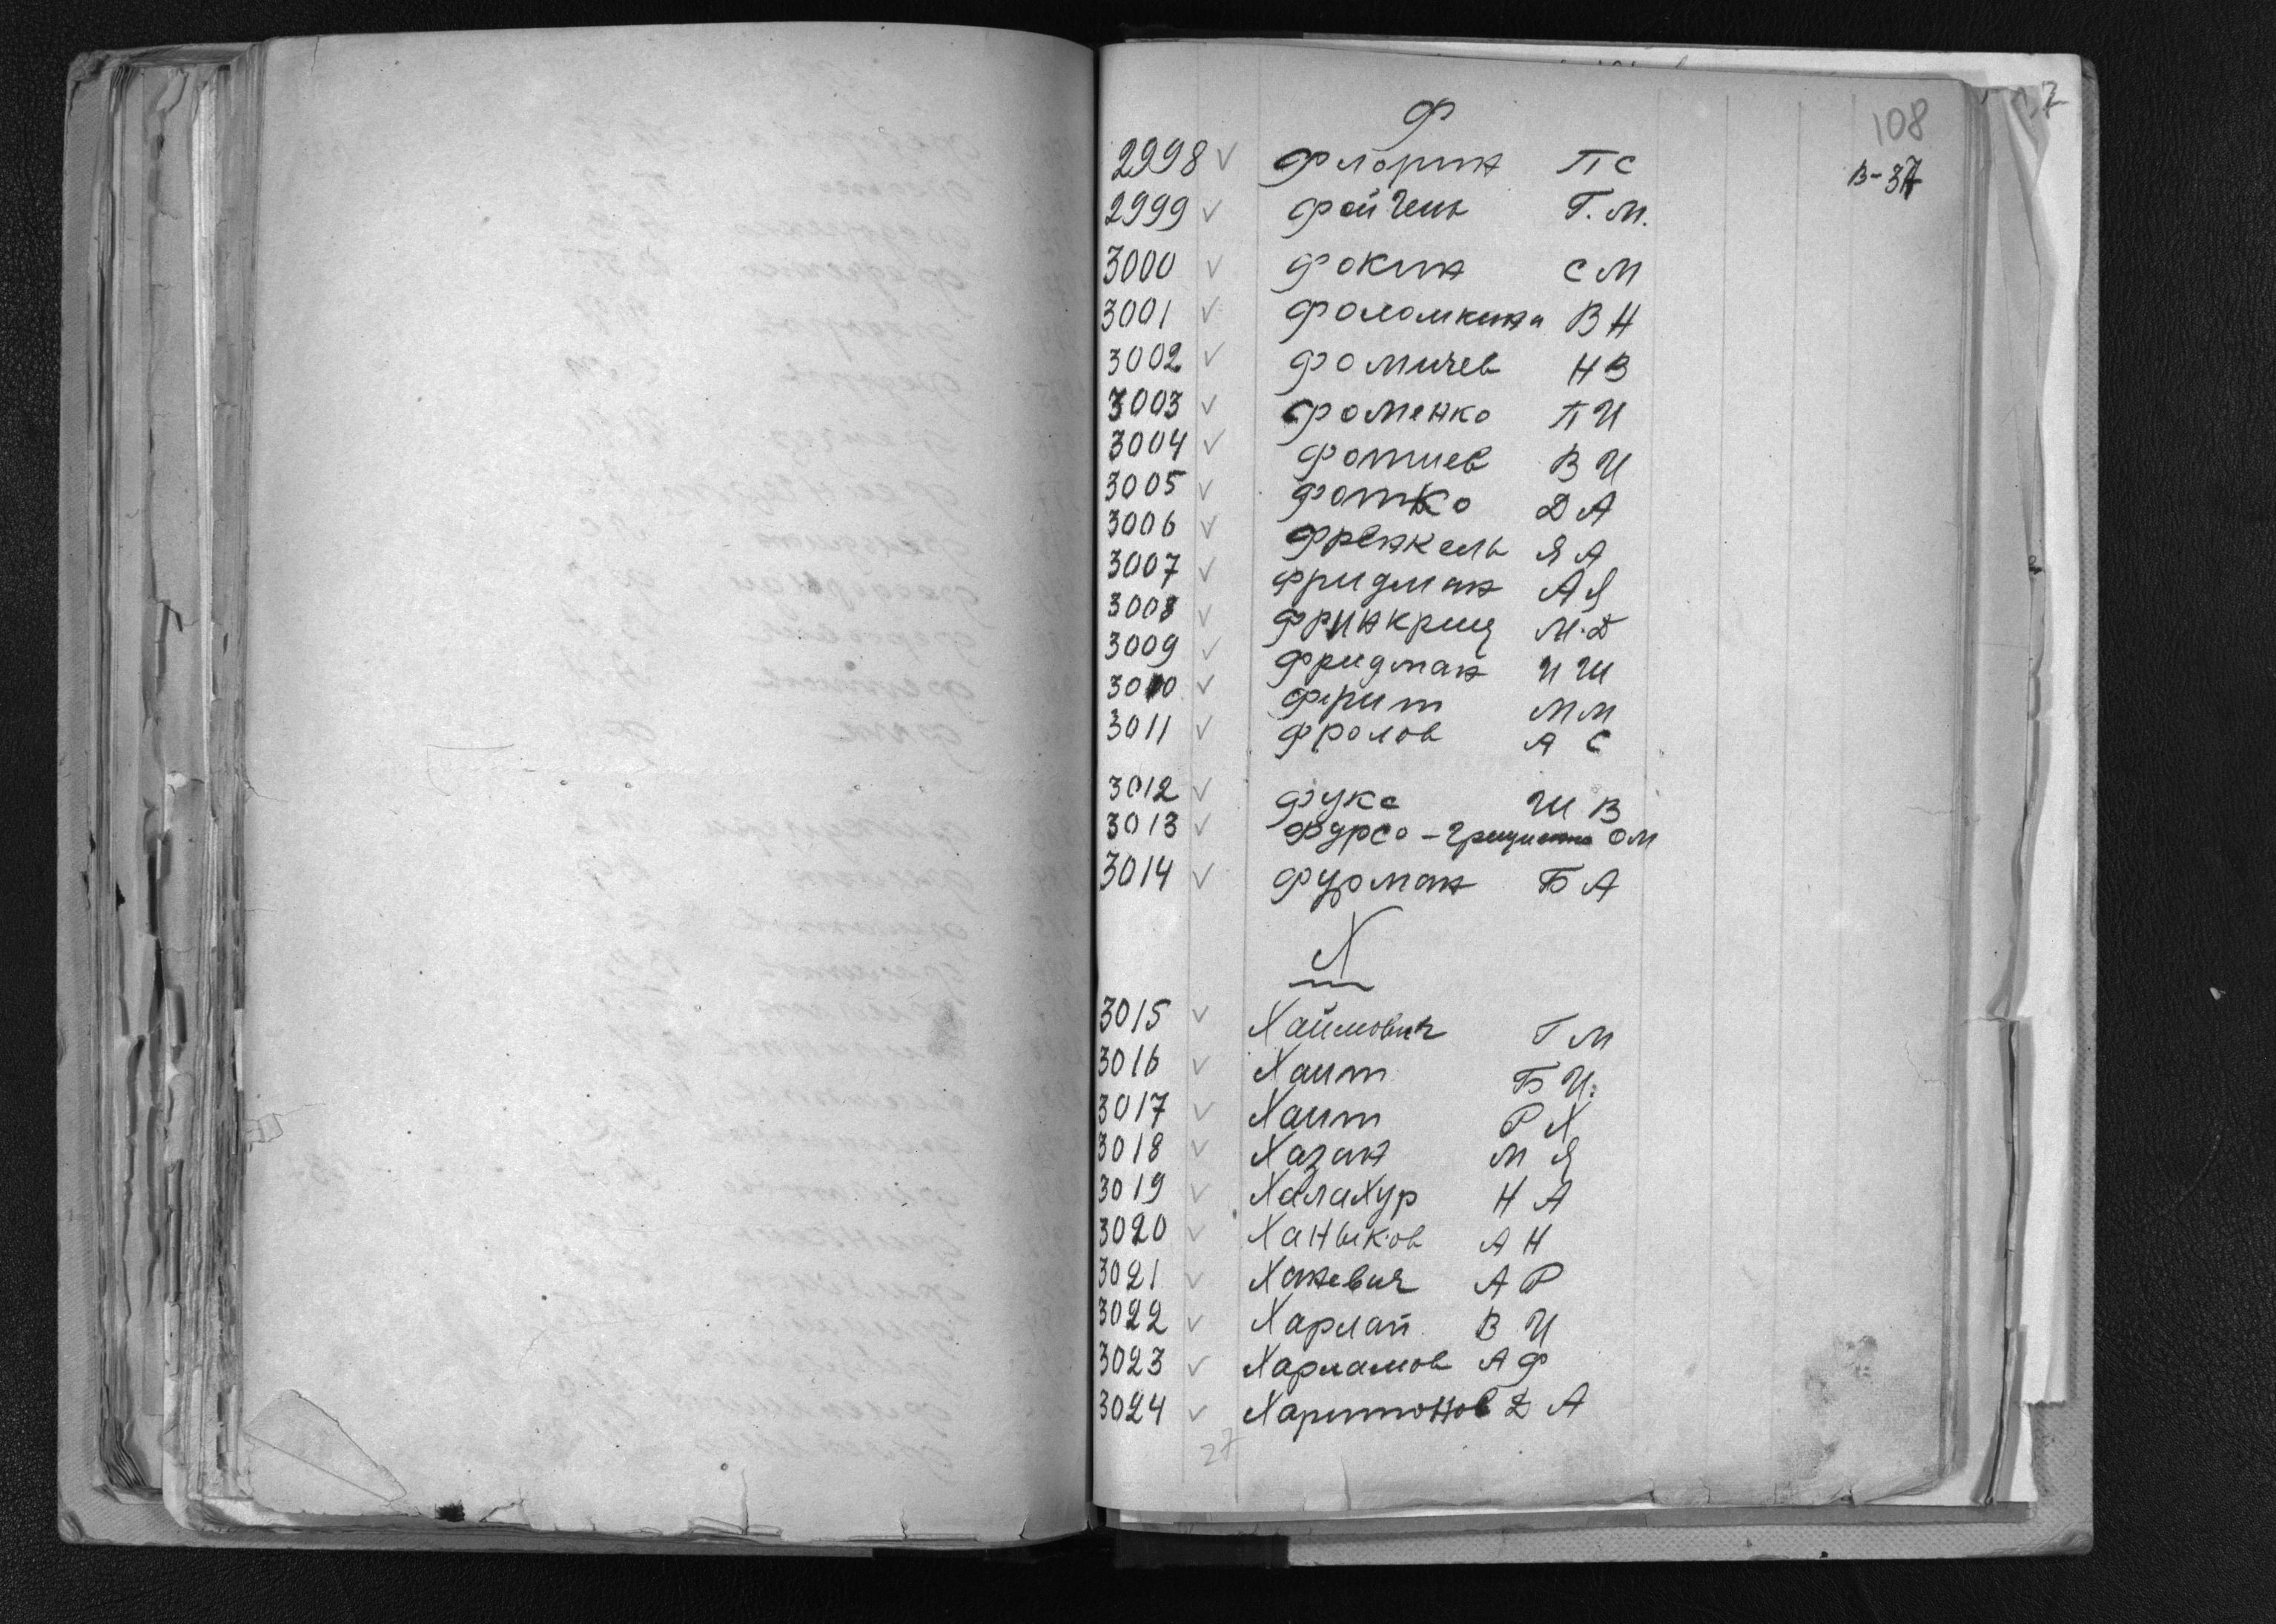 108
Ф
2998 ✓ Флорин П С В-37
2999 ✓ Фойгель Г. М.
3000 ✓ Фокин С М
3001 ✓ Фоломкина В Н
3002 ✓ Фомичев Н В
3003 ✓ Фоменко П И
3004 ✓ Фотиев В И
3005 ✓ Фотко Д А
3006 ✓ Френкель Я А
3007 ✓ Фридман А Я
3008 ✓ Фринкрищ М. Д
3009 ✓ Фридман И Ш
3010 ✓ Фрит М М
3011 ✓ Фролов А С
3012 ✓ Фукс Ш В
3013 ✓ Фурсо - О М
3014 ✓ Фурман Б А
Х
3015 ✓ Хаймович Г М
3016 ✓ Хаит Б И.
3017 ✓ Хаит Р Х
3018 ✓ Хазан М Я
3019 ✓ Халахур Н А
3020 ✓ Ханыков А Н
3021 ✓ Ханевич А Р
3022 ✓ Харлап В И
3023 ✓ Харламов А Ф
3024 ✓ Харитонов Д А
27